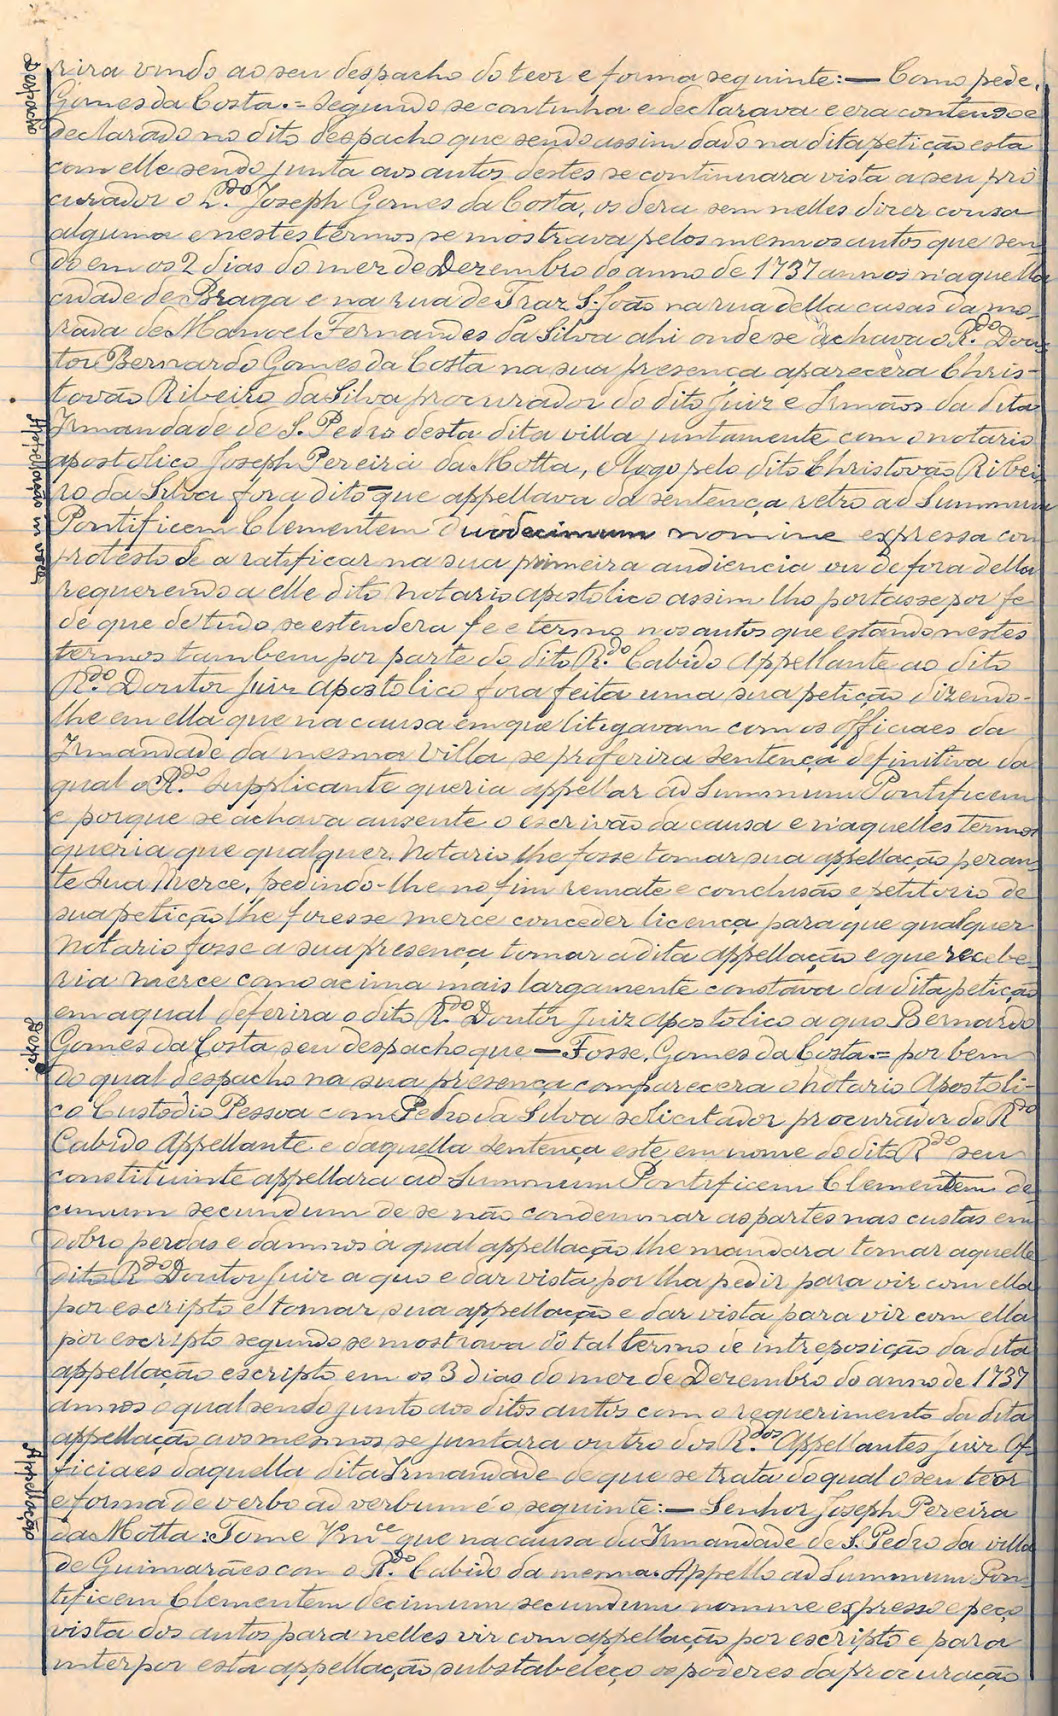 Despacho
rira vindo ao seu despacho do teor e forma seguinte:— Como pede,
Gomes da Costa.= Segundo se continha e declarava e era contendo e
declarado no dito despacho que sendo assim dado na dita petição esta
com elle sendo junta aos autos destes se continuara vista a seu pro
curador o L.do Joseph Gomes da Costa, os dera sem nelles dizer cousa
alguma e nestes termos se mostrava pelos mesmos autos que sen
do em os 2 dias do mez de Dezembro do anno de 1737 annos n'aquella
cidade de Braga e na rua de Traz S. João na rua della casas da mo-
rada de Manoel Fernandes da Silva ahi onde se achava o R.do Dou
tor Bernardo Gomes da Costa na sua presença aparecera Chris-
tovão Ribeiro da Silva procurador do dito Juiz e Irmãos da dita
Appellação in voce
Irmandade de S. Pedro desta dita villa juntamente com o notario
apostolico Joseph Pereira da Motta, e logo pelo dito Christovão Ribei
ro da Silva fora dito que appellava da sentença retro ad Summum
Pontificem Clementem duodecimum nomine expressa com
protesto de a ratificar na sua primeira audiencia ou de fora della
requerendo a elle dito Notario apostolico assim lho portasse por fe
de que de tudo se estendera fe e termo nos autos que estando nestes
termos tambem por parte do dito R.do Cabido Appellante ao dito
R.do Doutor Juiz Apostolico fora feita uma sua petição dizendo-
lhe em ella que na causa em que litigavam com os officiaes da
Irmandade da mesma Villa se proferira sentença definitiva da
qual o R.do Supplicante queria appellar ad Summum Pontificem
e porque se achava ausente o escrivão da causa e n'aquelles termos
queria que qualquer Notario lhe fosse tomar sua appellação peran
te Sua Merce, pedindo-lhe no fim remate e conclusão e petitorio de
sua petição lhe fizesse merce conceder licença para que qualquer
Notario fosse a sua presença tomar a dita appellação e que recebe-
ria merce como acima mais largamente constava da dita petição
em a qual deferira o dito R.do Doutor Juiz Apostolico a quo Bernardo
Desp.º
Gomes da Costa seu despacho que — Fosse, Gomes da Costa.= por bem
do qual despacho na sua presença comparecera o Notario Apostoli-
co Custodio Pessoa com Pedro da Silva solicitador procurador do R.do
Cabido Appellante e daquella sentença este em nome do dito R.do seu
constituinte appellara ad Summum Pontificem Clementem de
cimum secundum de se não condemnar as partes nas custas em
dobro perdas e damnos a qual appellação lhe mandara tomar aquelle
dito R.do Doutor Juiz a quo e dar vista por lha pedir para vir com ella
por escripto e tomar sua appellação e dar vista para vir com ella
por escripto segundo se mostrava do tal termo de intreposição da dita
appellação escripto em os 3 dias do mez de Dezembro do anno de 1737
annos o qual sendo junto aos ditos autos com o requerimento da dita
Appellação
appellação aos mesmos se juntara outro dos R.dos Appellantes Juiz Of
ficiaes daquella dita Irmandade de que se trata do qual o seu teor
e forma de verbo ad verbum é o seguinte:— Senhor Joseph Pereira
da Motta: Tome Vm.ce que na causa da Irmandade de S. Pedro da villa
de Guimarães com o R.do Cabido da mesma. Appello ad Summum Pon
tificem Clementem decimum secundum nomine expresso e peço
vista dos autos para nelles vir com appellação por escripto e para
interpor esta appellação substabeleço os poderes da procuração